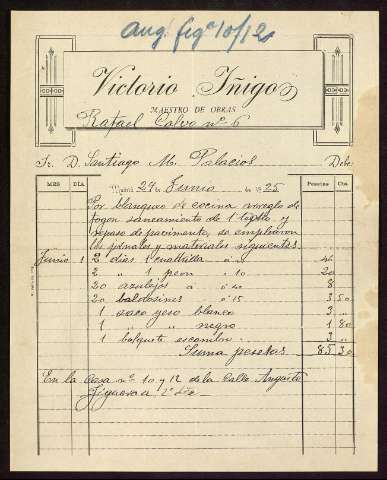 Aug. figª 10/12
Victorio Iñigo
MAESTRO DE OBRAS
Rafael Calvo nº 6
Sr. D. Santiago M. Palacios Debe
MES DIA Madrid 27 de Junio de 1925 Pesetas Cts.
Por blanqueo de cocina arreglo de
fogon saneamiento de 1 y
repaso de pavimento, se emplearon
los jornales y materiales siguientes
Junio 1 2 dias 1 cuadrilla a 46
2 " 1 peon a 10 20
20 azulejos a 0'40 8
20 baldosines a 0'15 3 50
1 saco yeso blanco 3 "
1 " " negro 1 80
1 volquete escombro 3 "
Suma pesetas 85 30
En la Casa nº 10 y 12 de la Calle Augusto
Figueroa 2º